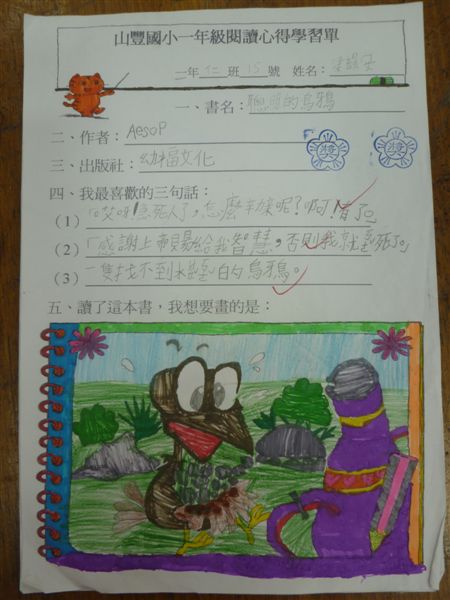 山豐國小一年級閱讀心得學習單
一年仁班15號 姓名：
一、書名：聰明的烏鴉
二、作者：AESOP
三、出版社：幼福文化
四、我最喜歡的三句話：
(1)「哎呀!急死人了,怎麼辦呢?啊!有了。
(2)「感謝上帝賜給我智慧,否則我就渴死了。」
(3)一隻找不到水喝的烏鴉。
五、讀了這本書，我想要畫的是：
獎
獎